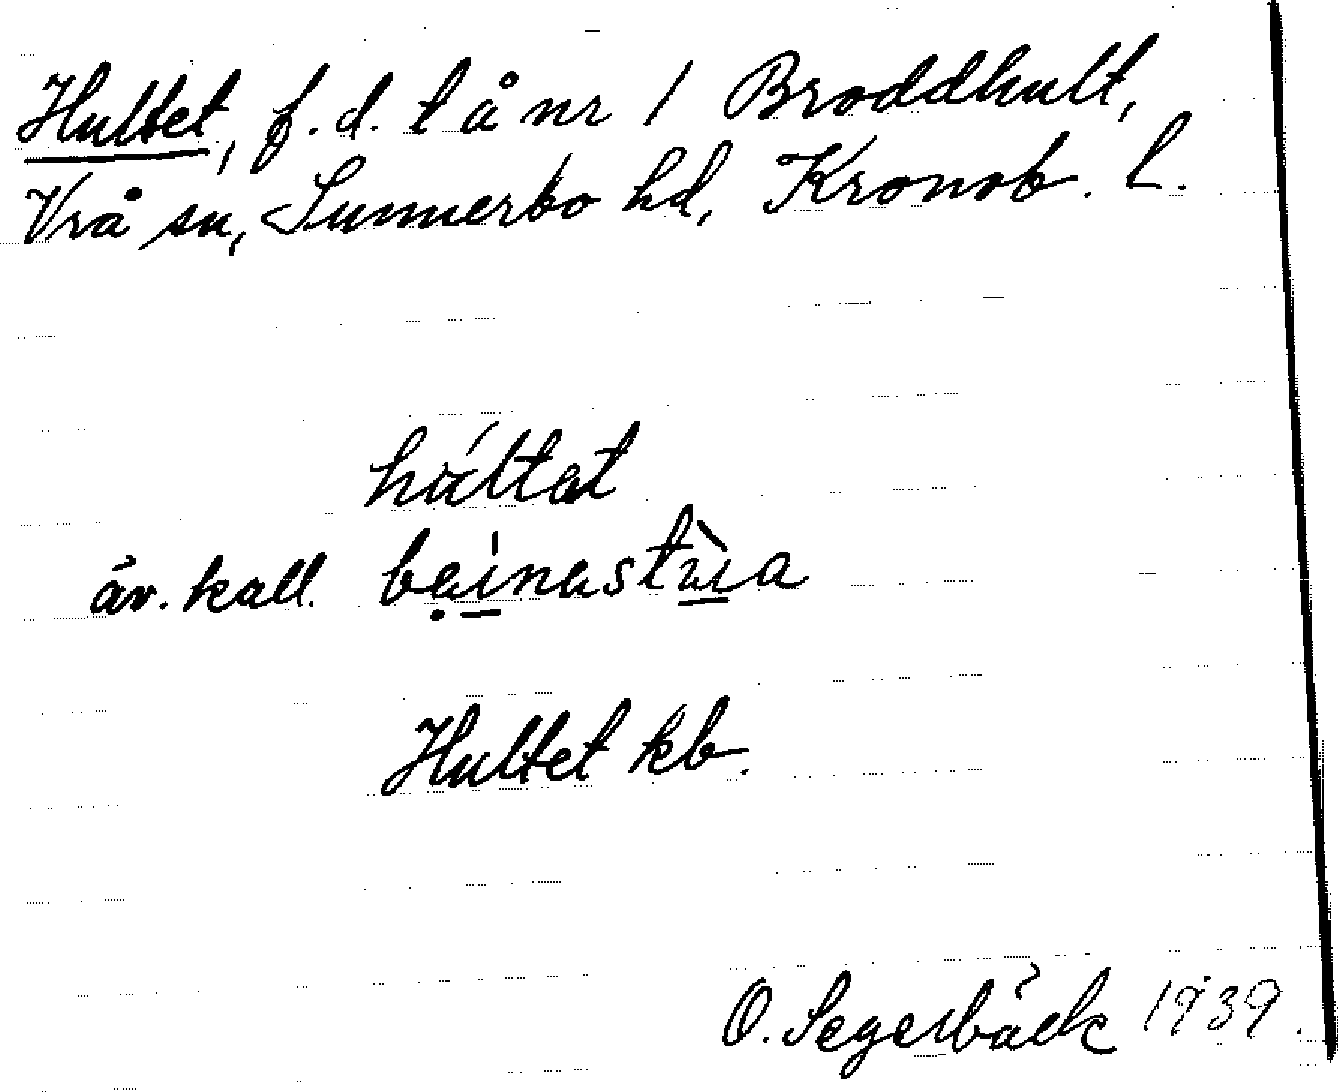 Hultet, f.d. t å nr 1 Broddhult,
Vrå sn, Sunnerbo hd, Kronob. l.
áv. kall.
Hultet kb.
O. Segerbäck 1939